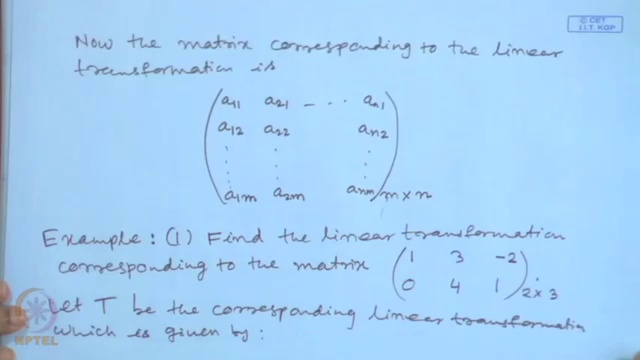 © CET
I.I.T. KGP
Now the matrix corresponding to the linear
transformation is
a11 a21 - ... an1
a12 a22 an2
a1m a2m anm m×n
Example: (1) Find the linear transformation
corresponding to the matrix (1 3 -2
0 4 1) 2×3.
Let T be the corresponding linear transformation
which is given by:
NPTEL